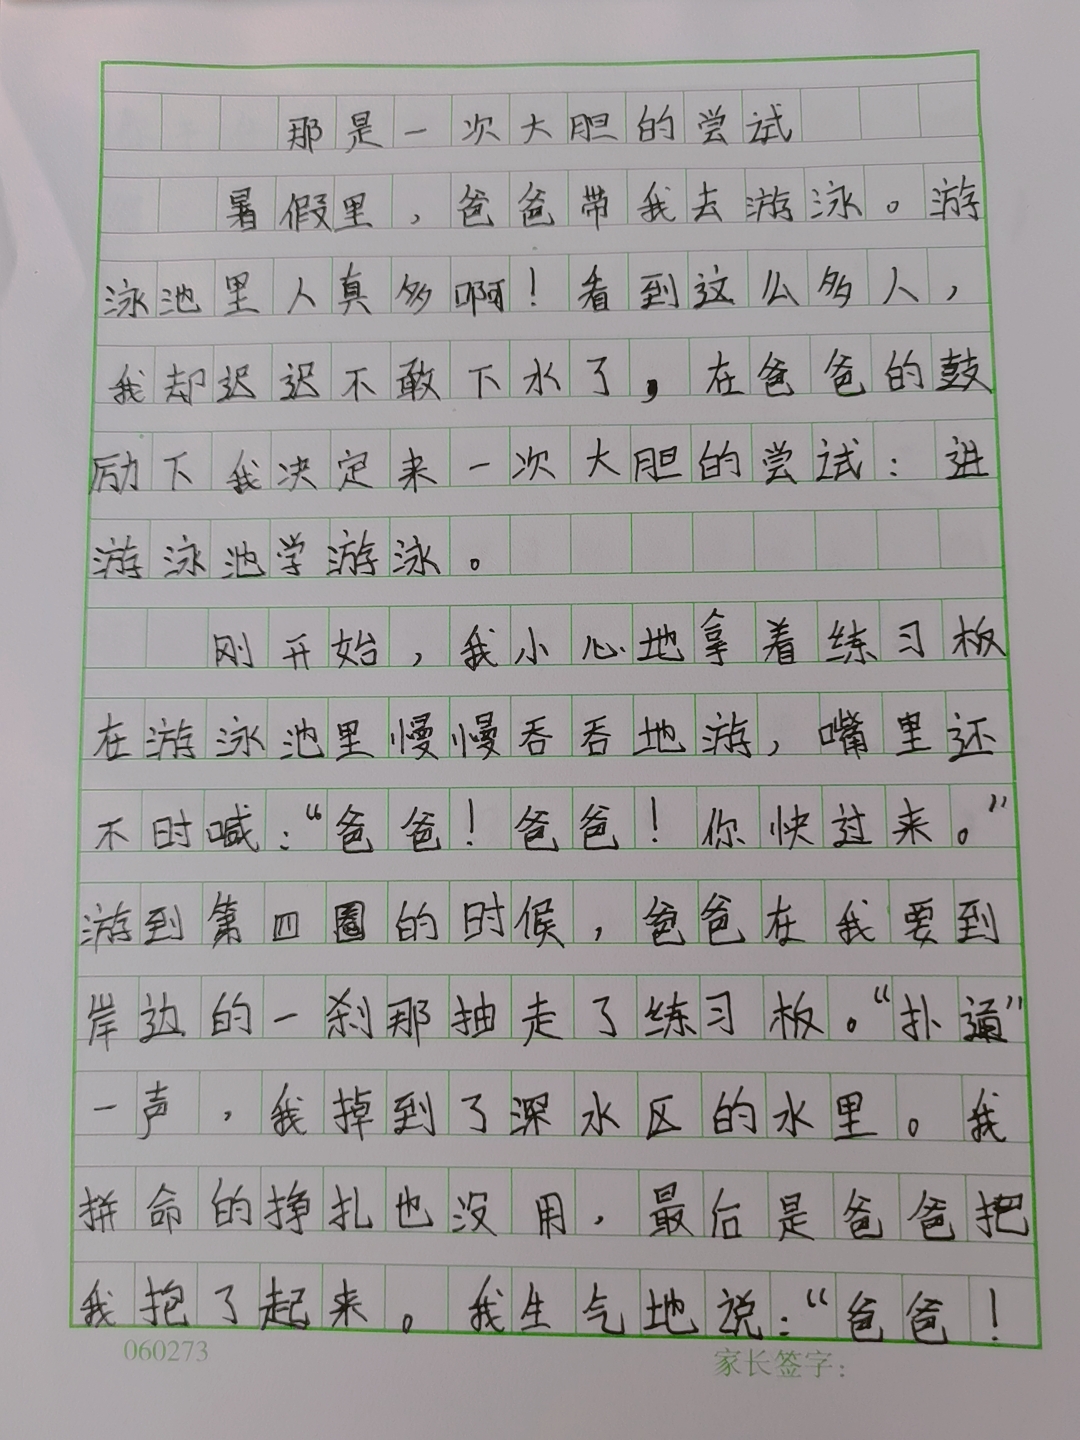 那是一次大胆的尝试
暑假里，爸爸带我去游泳。游
泳池里人真多啊！看到这么多人，
我却迟迟不敢下水了，在爸爸的鼓
励下我决定来一次大胆的尝试：进
游泳池学游泳。
刚开始，我小心地拿着练习板
在游泳池里慢慢吞吞地游，嘴里还
不时喊：“爸爸！爸爸！你快过来。”
游到第四圈的时候，爸爸在我要到
岸边的一刹那抽走了练习板。“扑通”
一声，我掉到了深水区的水里。我
拼命的挣扎也没用，最后是爸爸把
我抱了起来。我生气地说：“爸爸！
060273
家长签字：